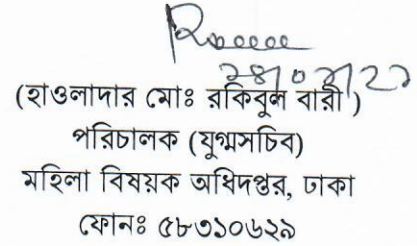 (হাওলাদার মোঃ রকিবুল বারী)
পরিচালক (যুগ্মসচিব)
মহিলা বিষয়ক অধিদপ্তর, ঢাকা
ফোনঃ ৫৮৩১০৬২৯